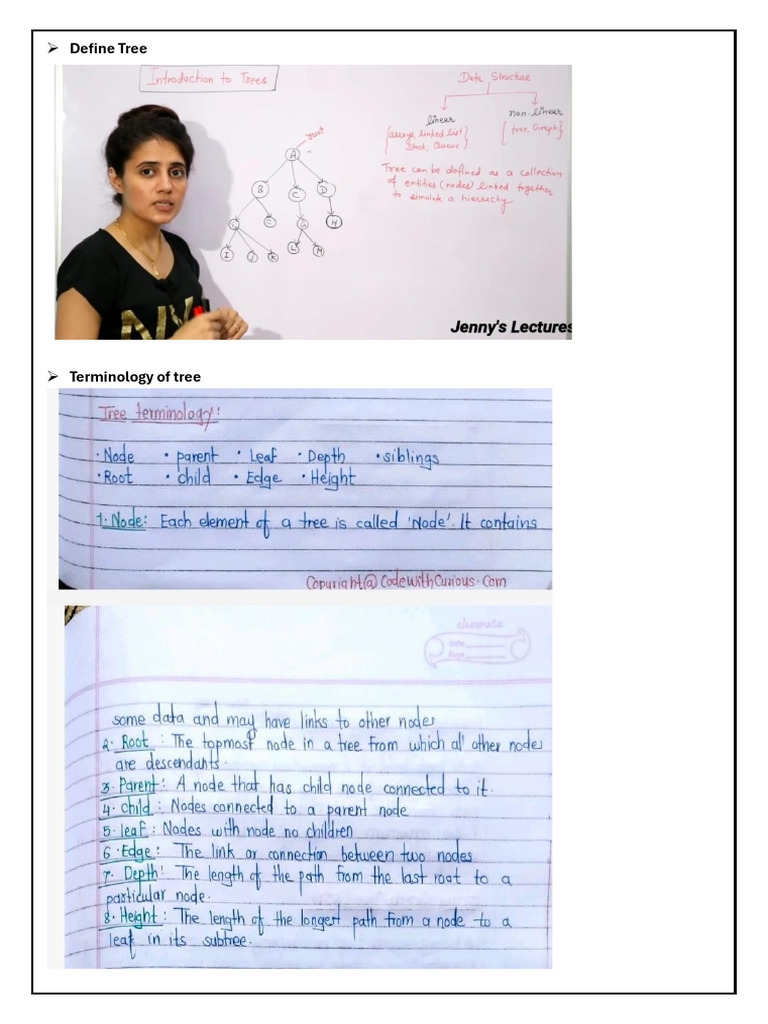 ➢ Define Tree
Introduction to Trees
Data Structure
linear
non-linear
{arrays, linked list
Stack, Queue}
{tree, Graph}
Tree can be defined as a collection
of entities (nodes) linked together
to simulate a hierarchy.
root
A
B C D
E G H
I J K L M
Jenny's Lectures
➢ Terminology of tree
Tree terminology:
• Node • parent • Leaf • Depth • siblings
• Root • child • Edge • Height
1. Node: Each element of a tree is called 'Node'. It contains
Copyright@CodeWithCurious.Com
classmate
Date
Page
some data and may have links to other nodes
2. Root : The topmost node in a tree from which all other nodes
are descendants.
3. Parent: A node that has child node connected to it.
4. child : Nodes connected to a parent node
5. leaf : Nodes with node no children
6. Edge : The link or connection between two nodes
7. Depth: The length of the path from the last root to a
particular node.
8. Height : The length of the longest path from a node to a
leaf in its subtree.